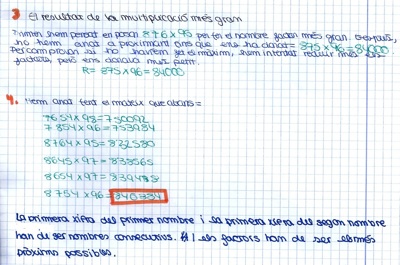 3 El resultat de la multiplicació més gran
Primer hem pensat en posar 876 x 95 per fer el nombre més gran. Després,
ho hem anat aproximant fins que ens ha donat = 875 x 96 = 84000
Per comprovar si ho havíem fet el màxim, hem intentat reduir més els
factors, però ens donava més petit.
R = 875 x 96 = 84000
4. Hem anat fent el mateix que abans =
7654 x 98 = 750092
7854 x 96 = 753984
8764 x 95 = 832580
8645 x 97 = 838565
8654 x 97 = 839438
8754 x 96 = 840384
La primera xifra del primer nombre i la primera xifra del segon nombre
han de ser nombres consecutius. I els factors han de ser el més
pròxims possibles.